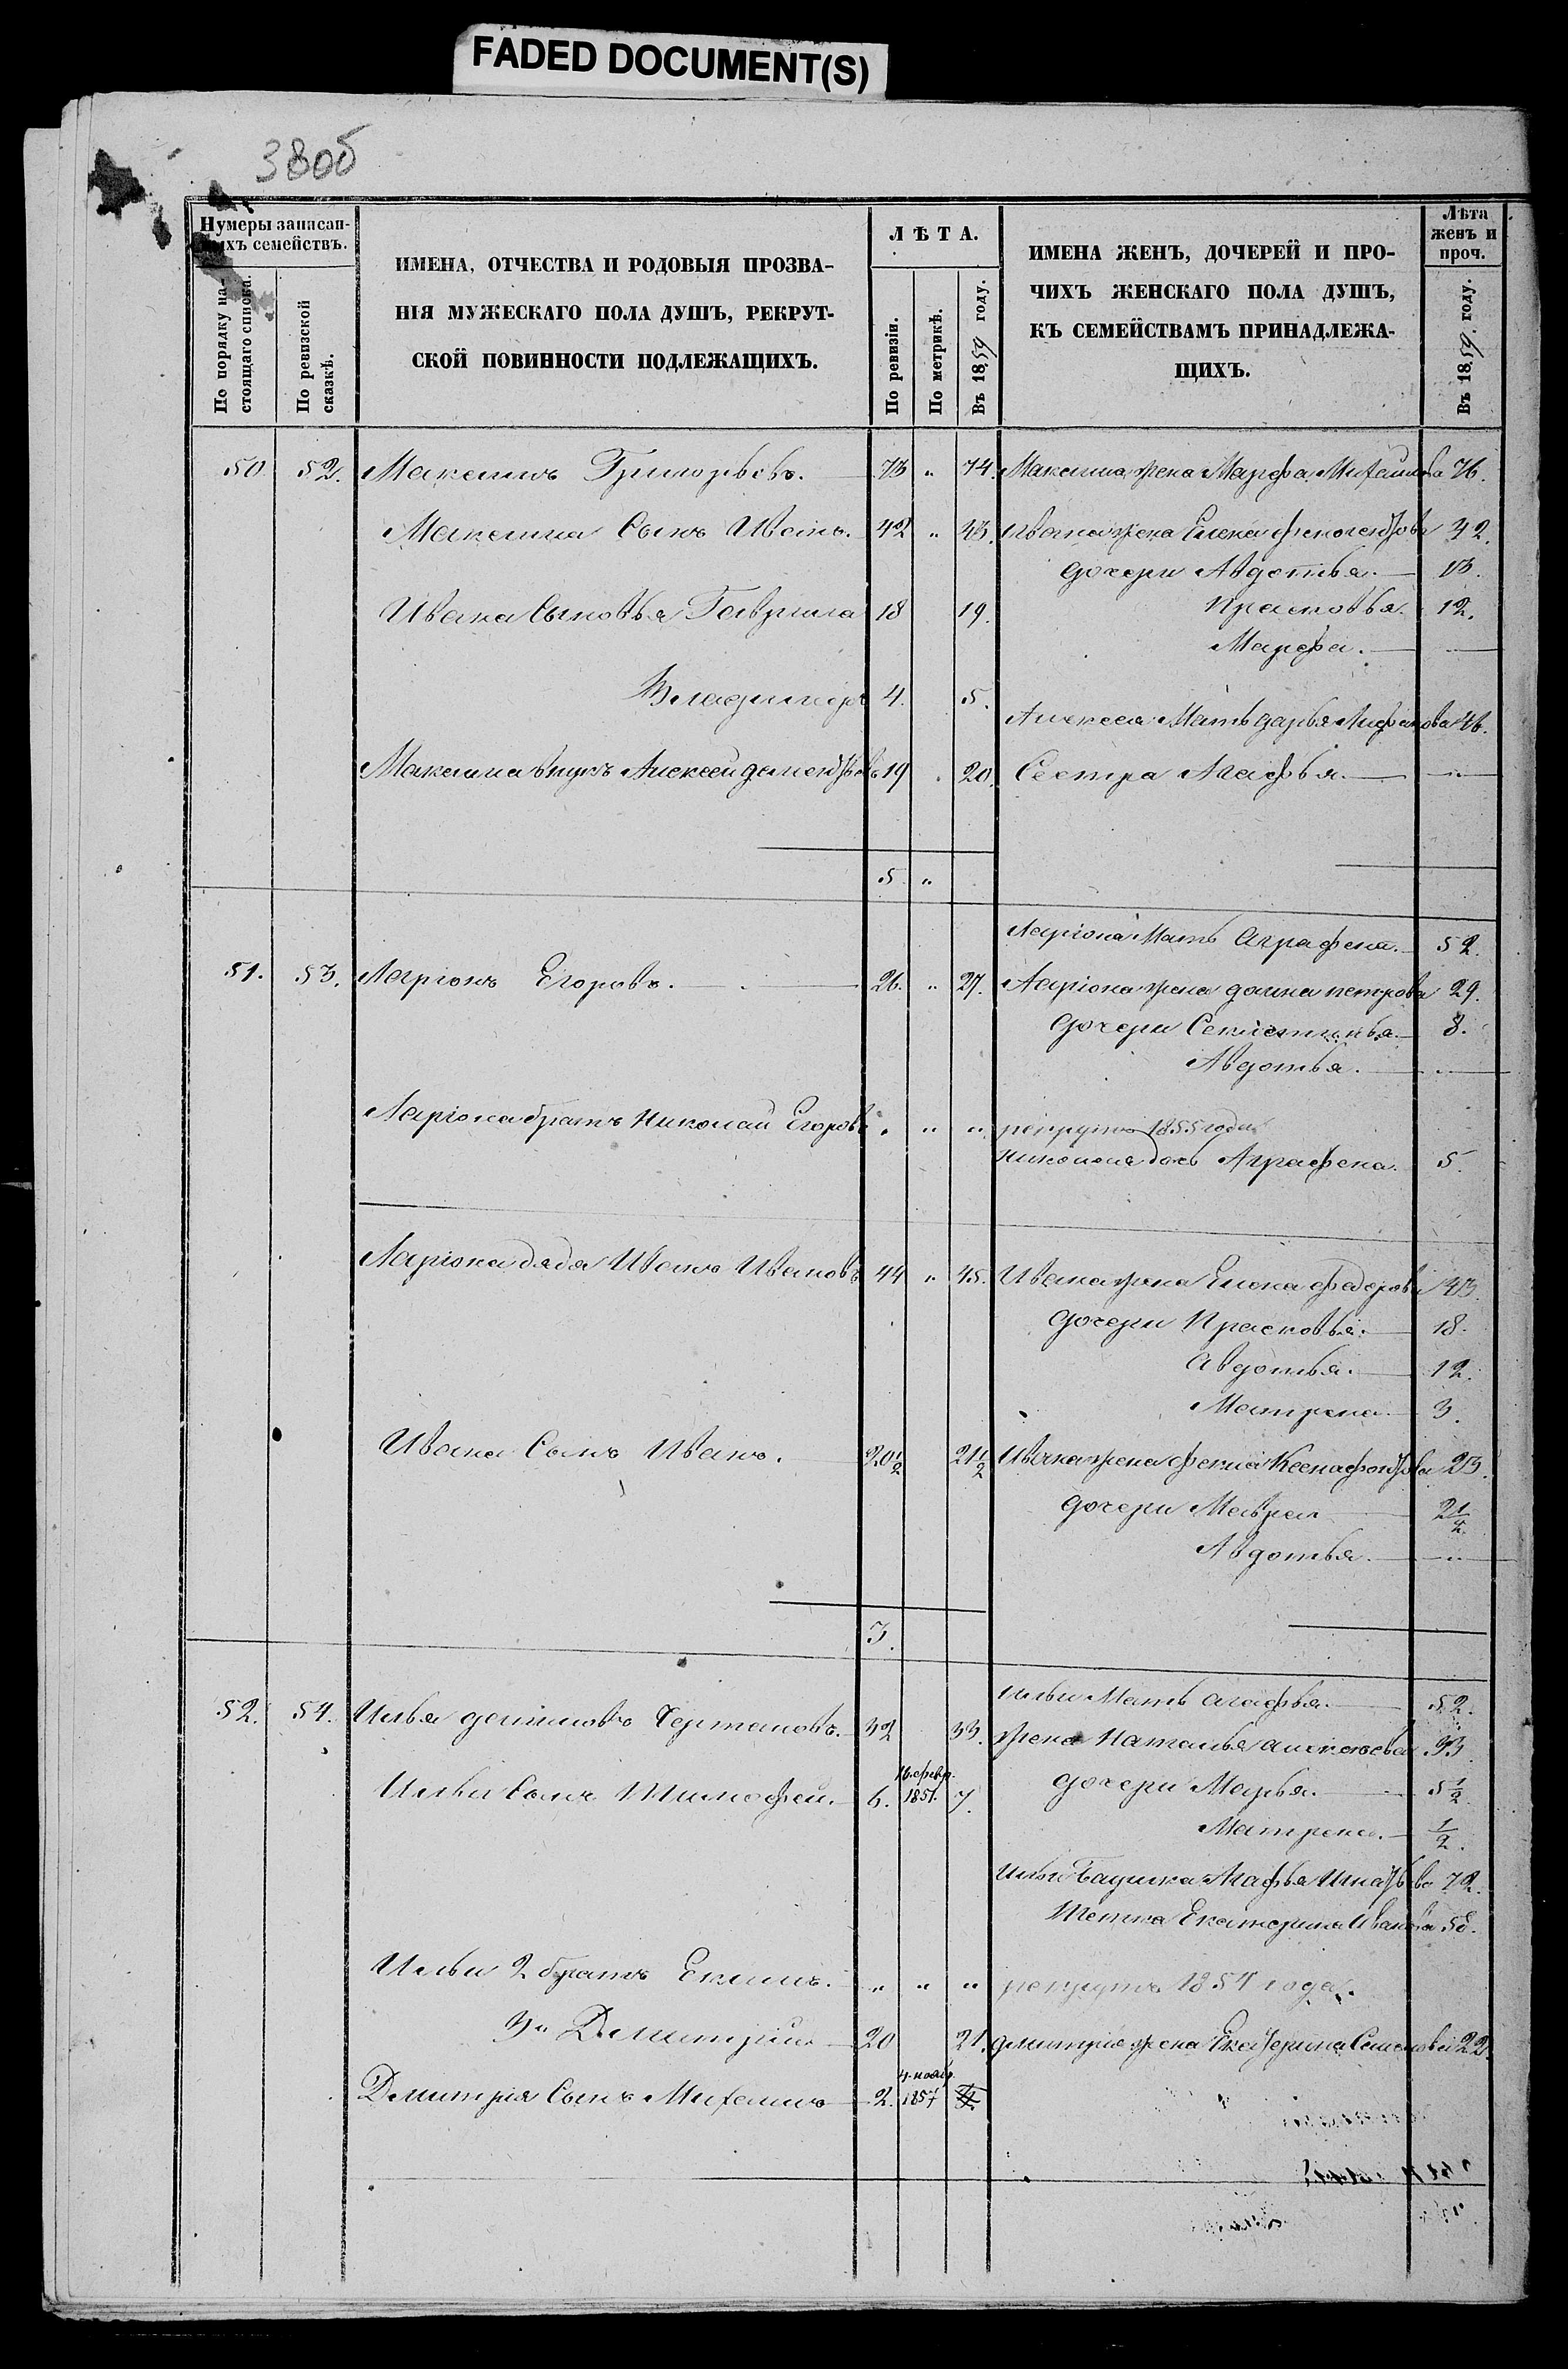 FADED DOCUMENT(S)
38об
Нумеры записан-
ныхъ семействъ.
По порядку на-
стоящаго списка.
По ревизской
сказкѣ.
ИМЕНА, ОТЧЕСТВА И РОДОВЫЯ ПРОЗВА-
НІЯ МУЖЕСКАГО ПОЛА ДУШЪ, РЕКРУТ-
СКОЙ ПОВИННОСТИ ПОДЛЕЖАЩИХЪ.
ЛѢТА.
По ревизіи.
По метрикѣ.
Въ 1859 году.
ИМЕНА ЖЕНЪ, ДОЧЕРЕЙ И ПРО-
ЧИХЪ ЖЕНСКАГО ПОЛА ДУШЪ,
КЪ СЕМЕЙСТВАМЪ ПРИНАДЛЕЖА-
ЩИХЪ.
Лѣта
женъ и
проч.
Въ 1859. году.
50. 52. Максимъ Григорьевъ. 73 " 74. Максима жена Марфа Михайлова 76.
Максима Сынъ Иванъ. 42 " 43. Ивана жена Елена 42.
дочери Авдотья. 13.
Ивана Сыновья Гаврила 18 19. Прасковья. 12.
Марфа. "
Владимиръ 4. 5.
Алексея Мать дарья 46.
Максима внукъ Алексей 19 20. Сестра Агафья. "
5 "
Ларіона Мать Аграфена. 52.
51. 53. Ларіонъ Егоровъ. 26. " 27. Ларіона жена домна петрова 29.
дочери 8.
Авдотья. "
Ларіона братъ Николай Егоровъ " " " рекрутъ 1855 года
Николая дочь Аграфена. 5.
Ларіона дядя Иванъ Ивановъ 44 " 45. Ивана жена Елена федорова 43.
дочери Прасковья. 18.
Авдотья. 12.
Матрена 3.
Ивана Сынъ Иванъ. 20½ 21½ Ивана жена фекла 23.
дочери Мавра 2½
Авдотья. "
3.
Ильи Мать агафья. 52.
52. 54. Илья 32 33. жена Наталья алексеева 33.
16. февр.
Ильи Сынъ Тимофей. 6. 1851. 7. дочери Марья. 5½
Матрена. ½.
Ильи бабушка Агафья 72.
Тетка Екатерина Иванова
Ильи 2 братъ Екимъ. " " " рекрутъ 1854 года.
3й Дмитрій 20 21. дмитрія жена Екатерина 22.
4. нояб.
Дмитрія Сынъ Михаилъ 2. 1857